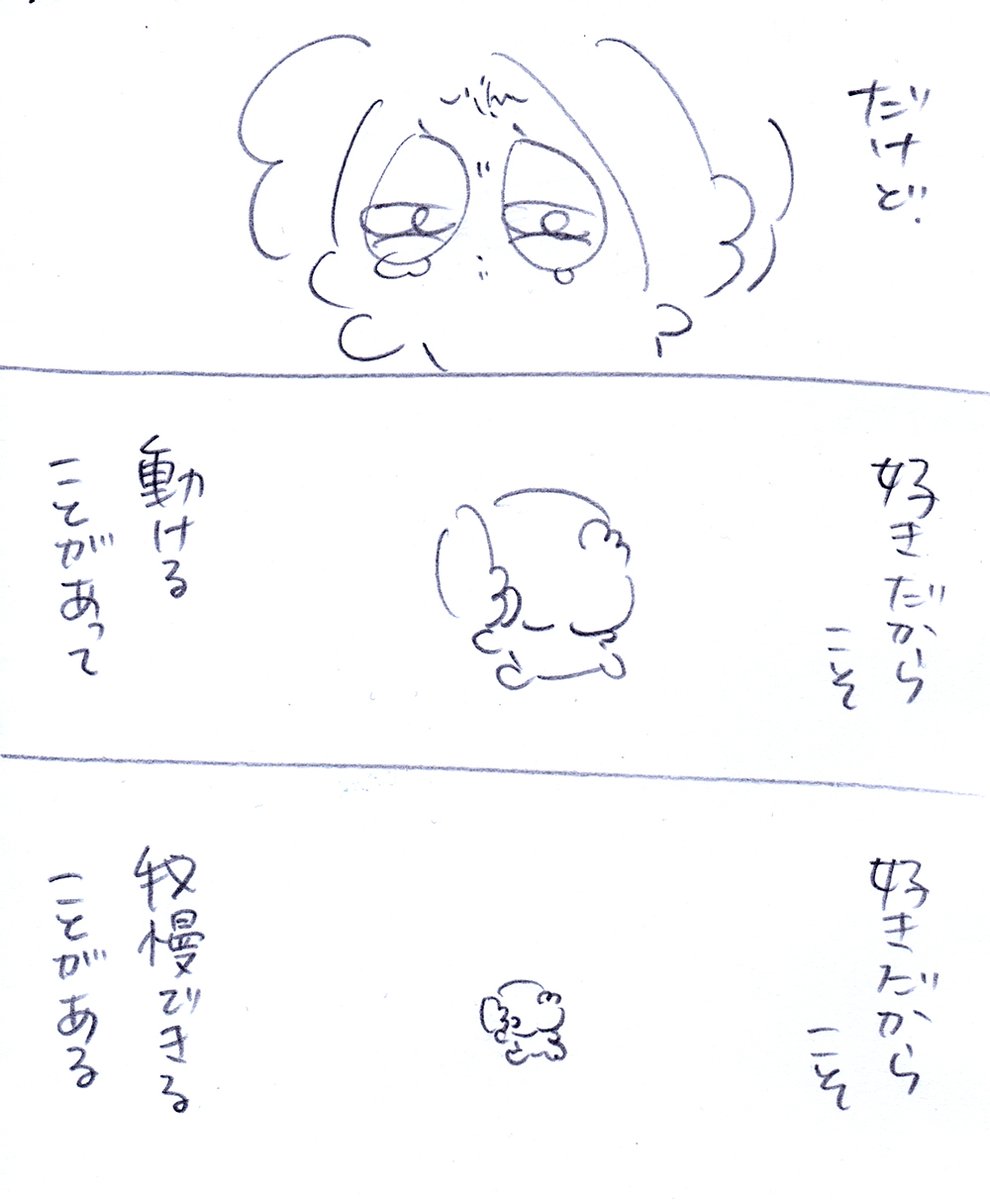 だけど
好きだから
こそ
動ける
ことがあって
好きだから
こそ
我慢できる
ことがある